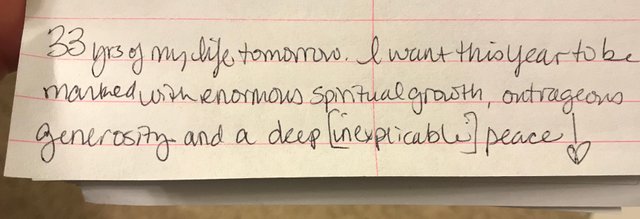 33 yrs of my life tomorrow. I want this year to be
marked with enormous spiritual growth, outrageous
generosity and a deep [inexplicable] peace!